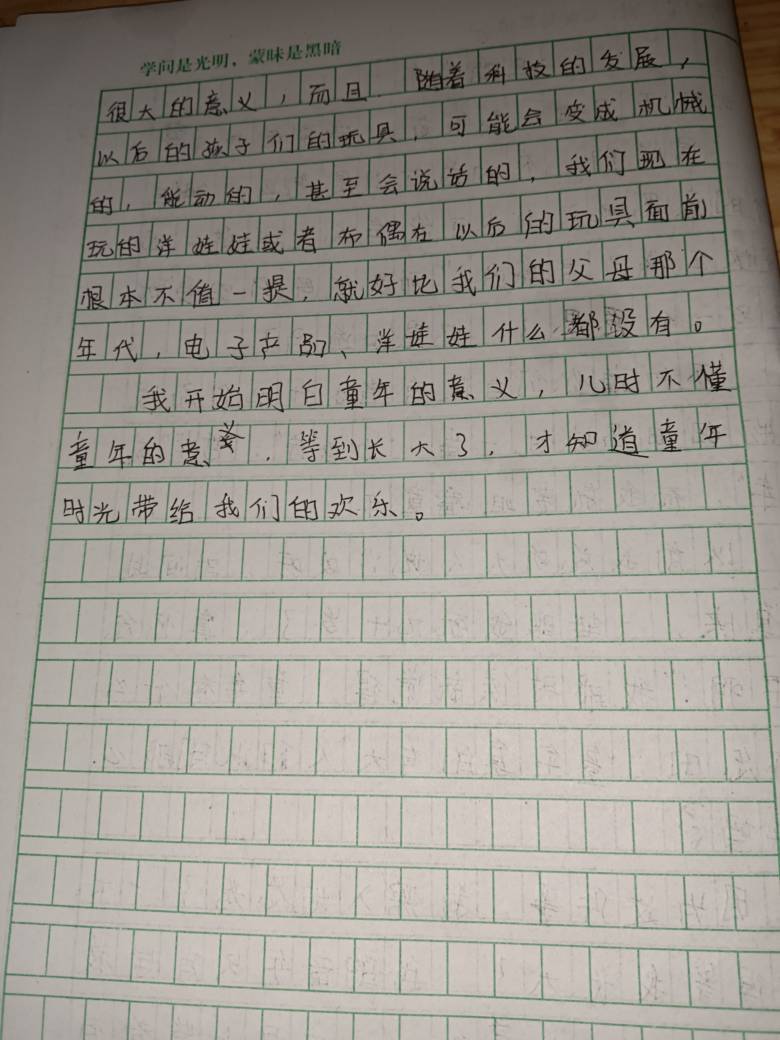 学问是光明，蒙昧是黑暗
很大的意义，而且．随着科技的发展，
以后的孩子们的玩具，可能会变成机械
的，能动的，甚至会说话的，我们现在
玩的洋娃娃或者布偶在以后的玩具面前
根本不值一提，就好比我们的父母那个
年代，电子产品、洋娃娃什么都没有。
我开始明白童年的意义，儿时不懂
童年的意义，等到长大了，才知道童年
时光带给我们的欢乐。